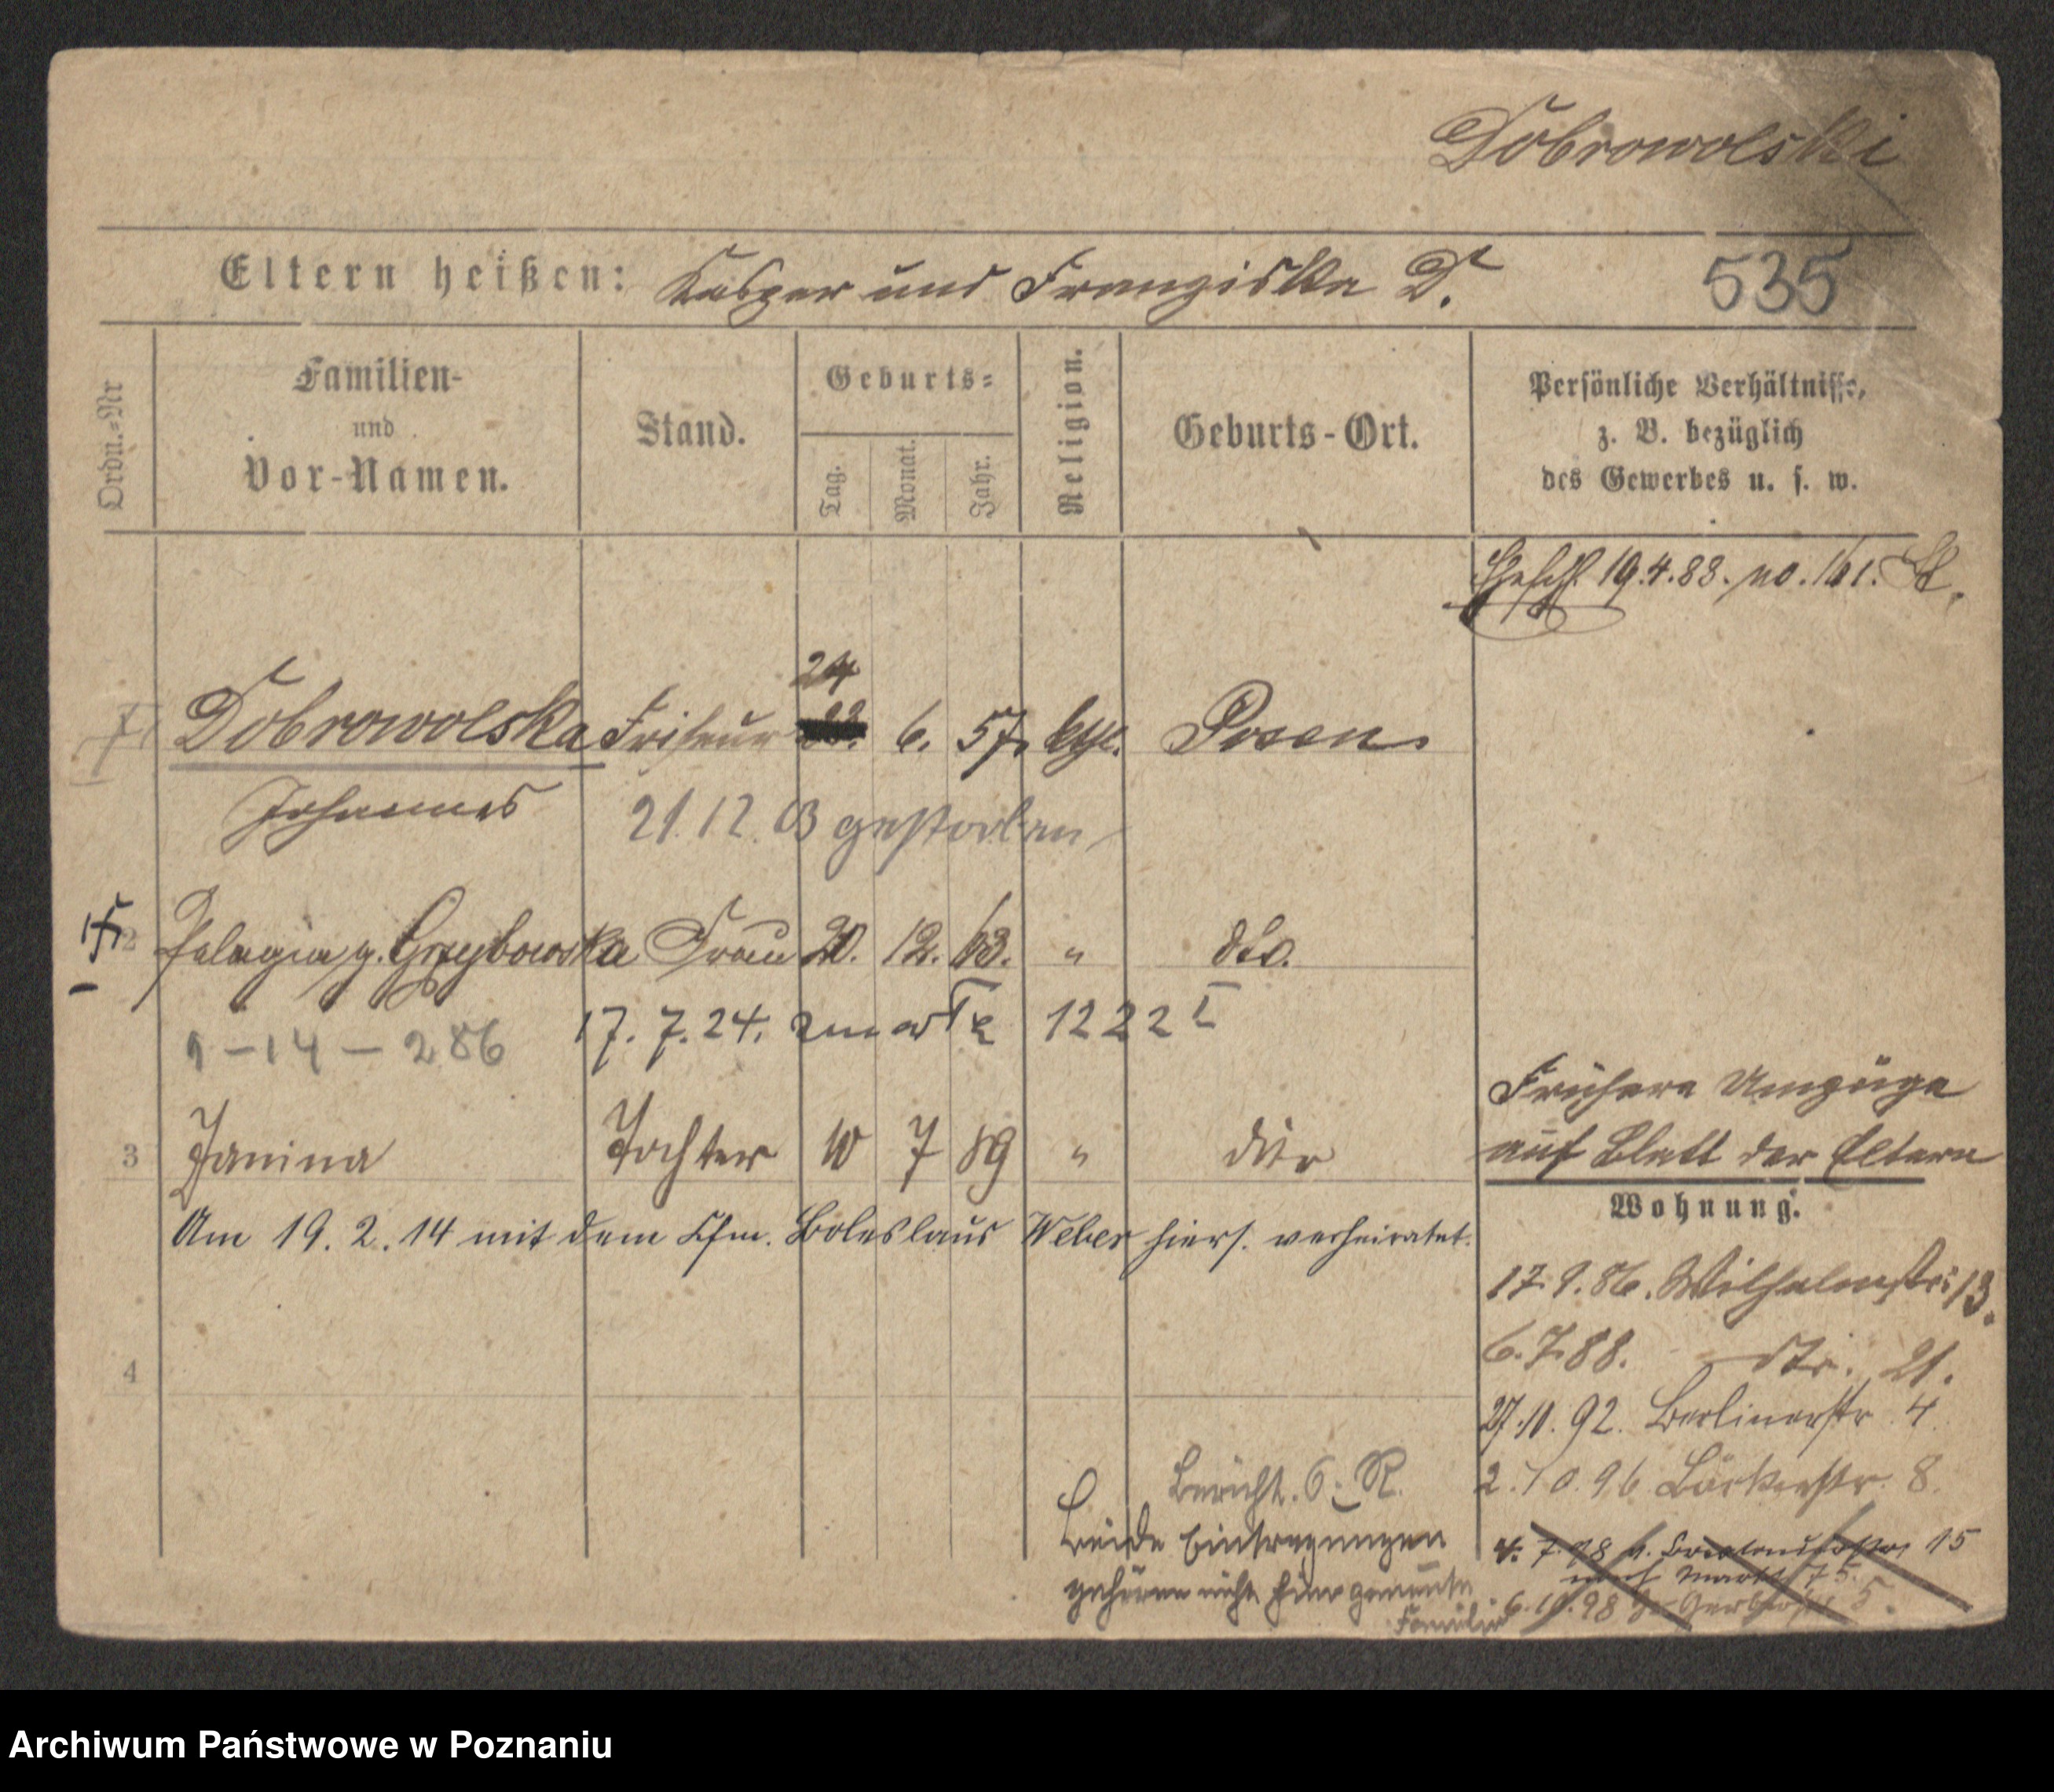 Dobrowolski
Eltern heißen: Kasper und Franziska D.
535
Ordn.-Nr
Familien- und Vor-Namen.
Stand.
Geburts-
Tag. Monat. Jahr.
Religion.
Geburts-Ort.
Persönliche Verhältnisse,
z. B. bezüglich
des Gewerbes u. s. w.
19.4.88. no. 161.
24
Dobrowolska Friseur 6. 57. kth. Posen
Johannes
21.12.03 gestorben
2 Pelagia g. Grzybowska Frau 20. 12. 63. " dto.
17. 7. 24. 1222 I
1-14-286
Frühere Umzüge
auf Blatt der Eltern
3 Janina Tochter 10 7 89 " dito
Wohnung.
Am 19. 2. 14 mit dem Kfm. Boleslaus Weber hiers. verheiratet.
17.9.86. Wilhelmstr. 13.
6.7.88. dto. 21.
4
27.10.92. Berlinerstr. 4
2.10.96 Bäckerstr. 8.
Bericht. 6. R.
Beide Eintragungen
gehören nicht Familie
15
6.10.98 5.
Archiwum Państwowe w Poznaniu